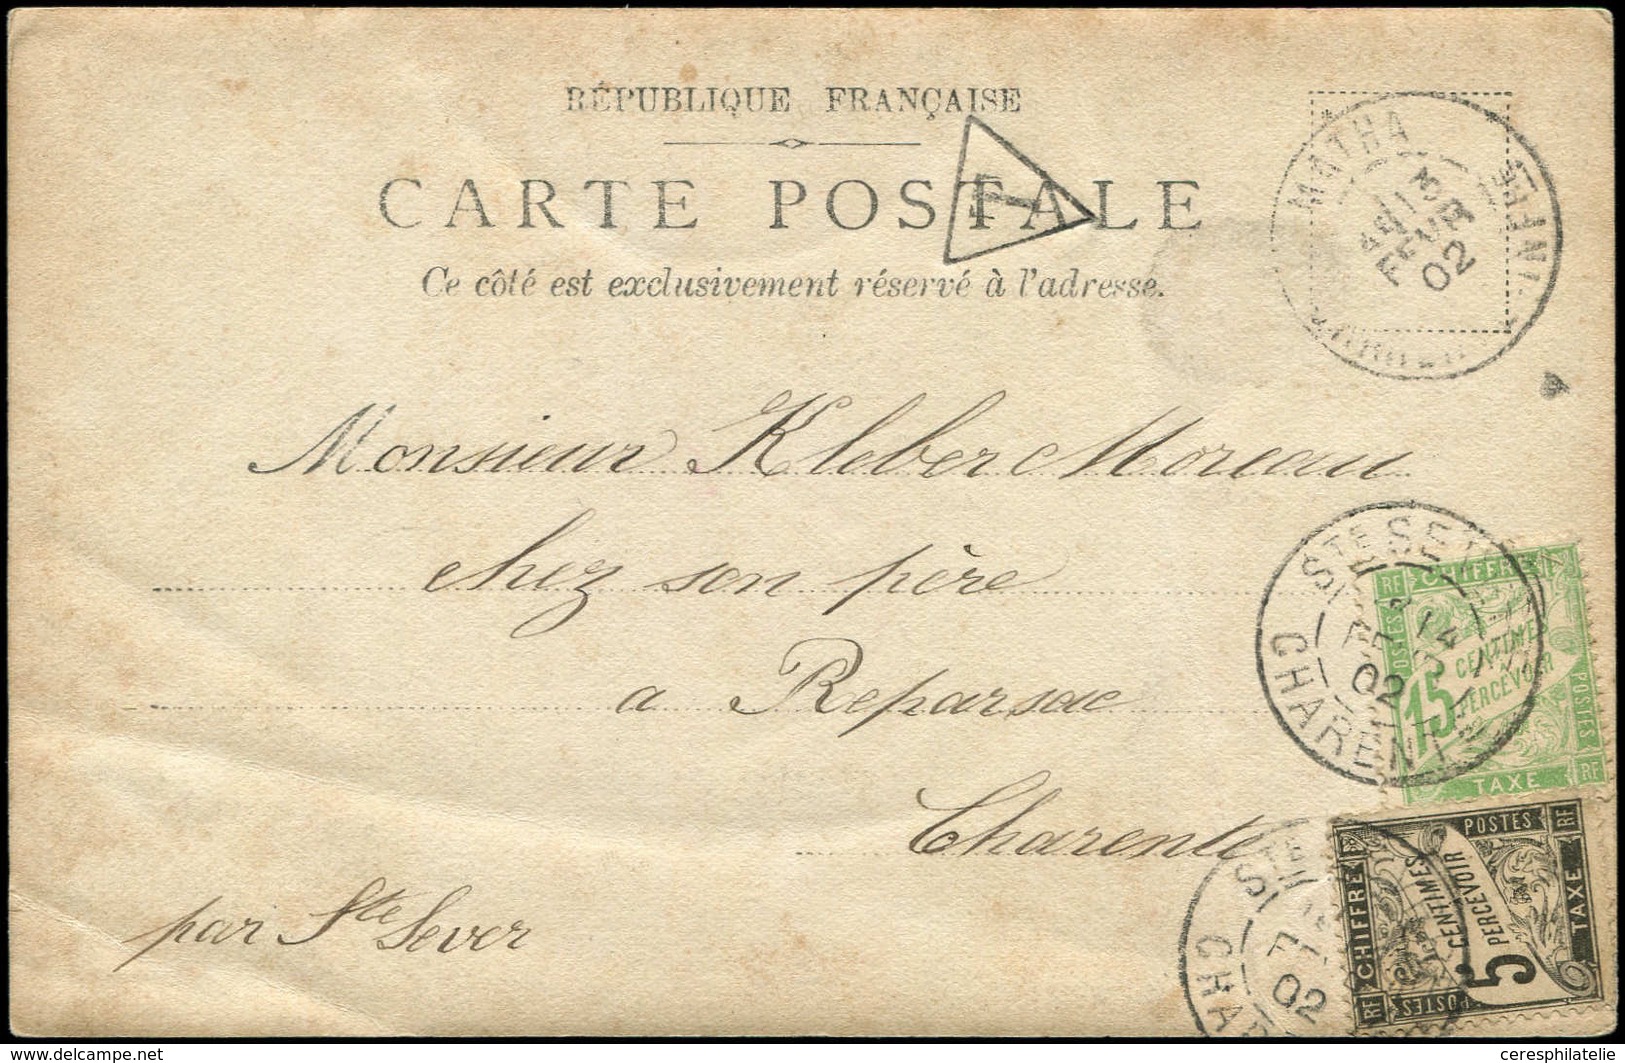 RÉPUBLIQUE FRANÇAISE
CARTE POSTALE
T
Ce côté est exclusivement réservé à l'adresse.
MATHA
13
FEVR
02
Monsieur Kleber Moreau
chez son père
a Reparsac
Charente
par Ste Sever
STE SE
14
02
CHARENT
RF CHIFFRE
POSTES
15 CENTIMES
A
PERCEVOIR
POSTES
TAXE RF
STE
02
CHAR
RF CHIFFRE
POSTES RF
5 CENTIMES
A
PERCEVOIR
POSTES
TAXE
www.delcampe.net
ceresphilatelie